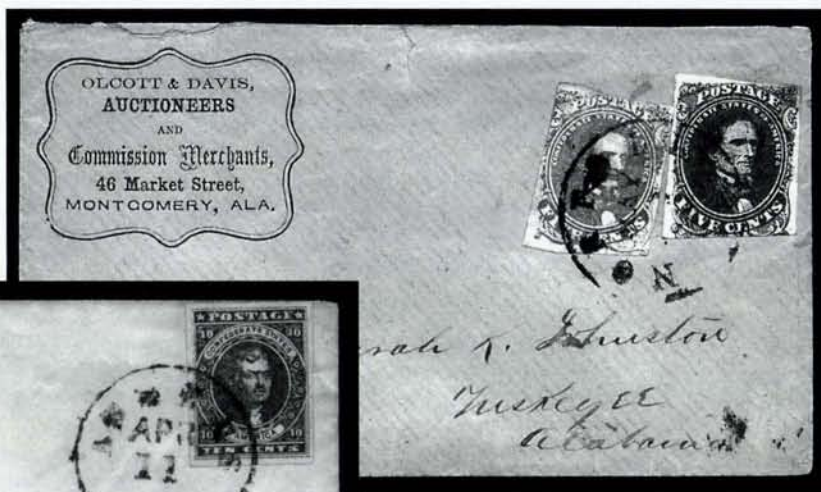 OLCOTT & DAVIS,
AUCTIONEERS
AND
Commission Merchants,
46 Market Street,
MONTGOMERY, ALA.
POSTAGE
CONFEDERATE STATES
CENTS
POSTAGE
CONFEDERATE STATES OF AMERICA
FIVE CENTS
N
rah K. Johnston
Tuskegee
Alabama
POSTAGE
10 10
CONFEDERATE STATES OF
AMERICA
10 10
TEN CENTS
APR
11